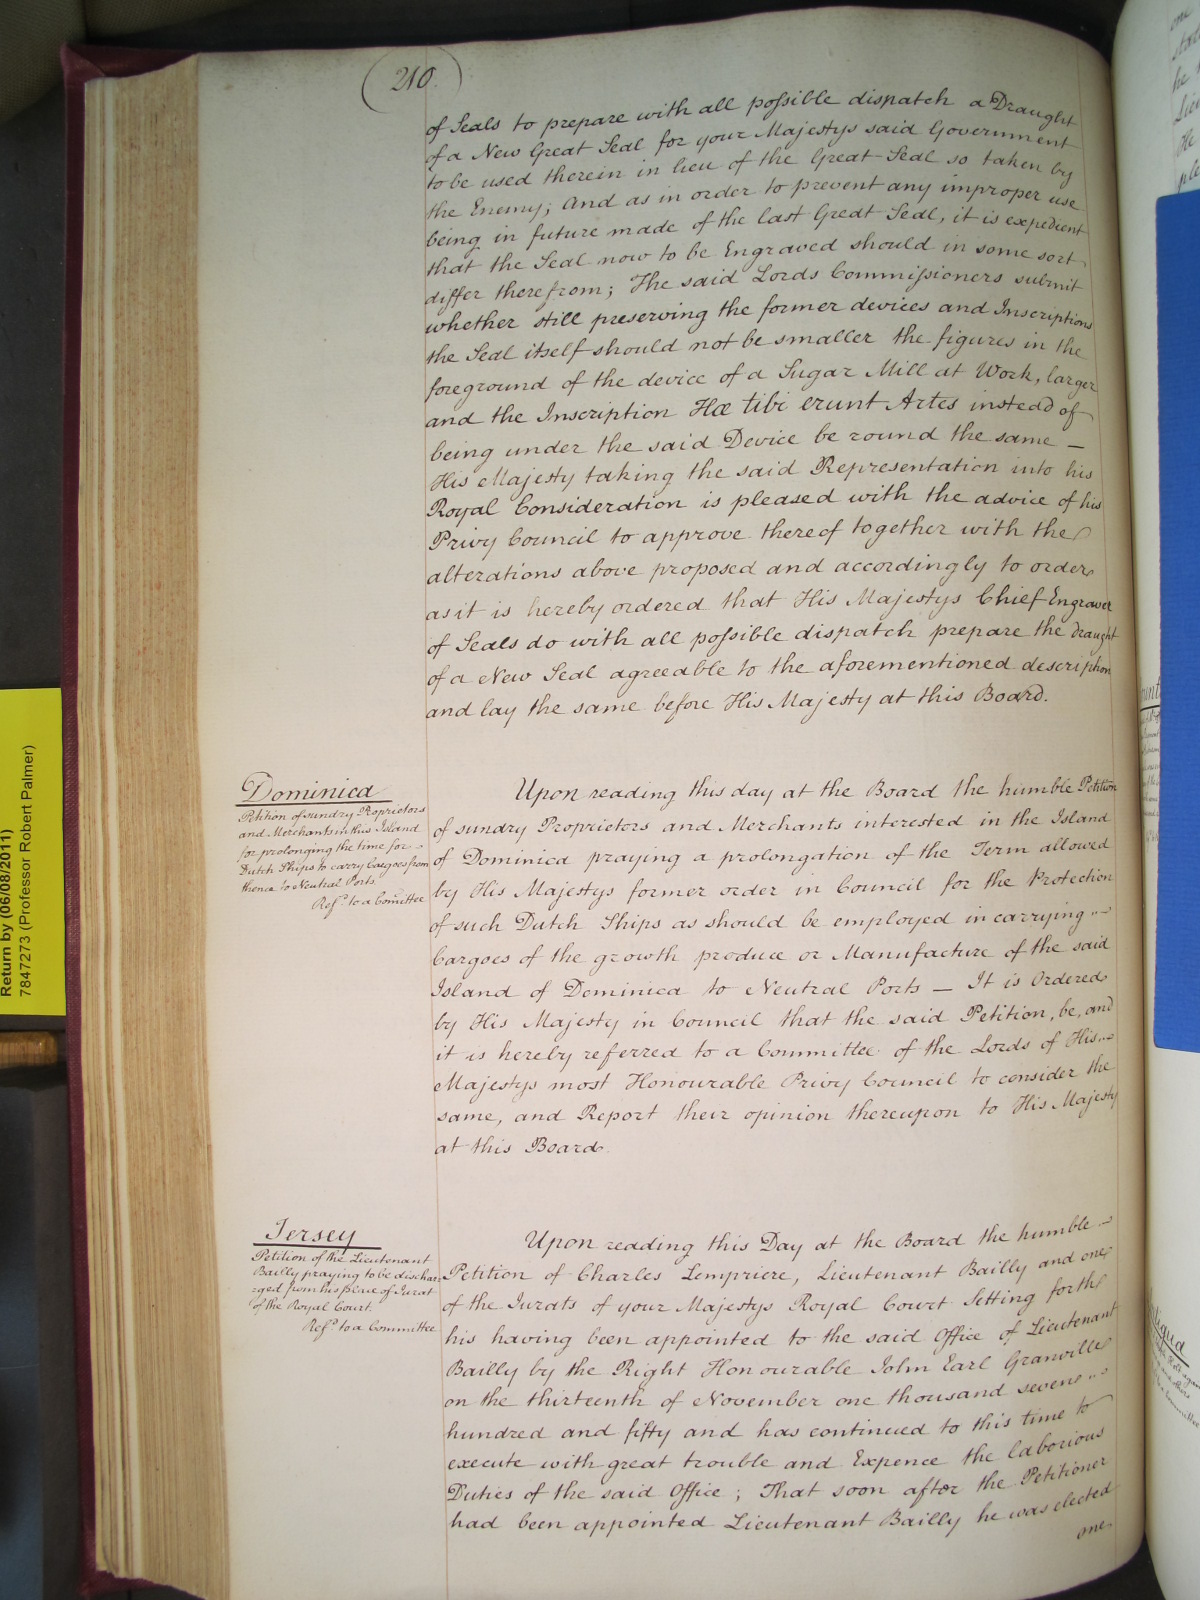 210.
of Seals to prepare with all possible dispatch a Draught
of a New Great Seal for your Majestys said Government
to be used therein in lieu of the Great Seal so taken by
the Enemy; And as in order to prevent any improper use
being in future made of the last Great Seal, it is expedient
that the Seal now to be Engraved should in some sort
differ therefrom; The said Lords Commissioners submit
whether still preserving the former devices and Inscriptions
the Seal itself should not be smaller the figures in the
foreground of the device of a Sugar Mill at Work, larger
and the Inscription Hæ tibi erunt Artes instead of
being under the said Device be round the same —
His Majesty taking the said Representation into his
Royal Consideration is pleased with the advice of his
Privy Council to approve thereof together with the
alterations above proposed and accordingly to order
as it is hereby ordered that His Majestys Chief Engraver
of Seals do with all possible dispatch prepare the draught
of a New Seal agreeable to the aforementioned description
and lay the same before His Majesty at this Board.
Dominica
Petition of sundry Proprietors
and Merchants in this Island
for prolonging the time for
Dutch Ships to carry Cargoes from
thence to Neutral Ports.
Refd. to a Comittee
Upon reading this day at the Board the humble Petition
of sundry Proprietors and Merchants interested in the Island
of Dominica praying a prolongation of the Term allowed
by His Majestys former order in Council for the Protection
of such Dutch Ships as should be employed in carrying
Cargoes of the growth produce or Manufacture of the said
Island of Dominica to Neutral Ports — It is Ordered
by His Majesty in Council that the said Petition, be, and
it is hereby referred to a Committee of the Lords of His
Majestys most Honourable Privy Council to consider the
same, and Report their opinion thereupon to His Majesty
at this Board
Jersey
Petition of the Lieutenant
Bailly praying to be dischar
rged from his place of Jurat
of the Royal Court.
Refd. to a Committee
Upon reading this Day at the Board the humble
Petition of Charles Lempriere, Lieutenant Bailly and one
of the Jurats of your Majestys Royal Court Setting forth
his having been appointed to the said Office of Lieutenant
Bailly by the Right Honourable John Earl Granville
on the thirteenth of November one thousand seven
hundred and fifty and has continued to this time to
execute with great trouble and Expence the laborious
Duties of the said Office; That soon after the Petitioner
had been appointed Lieutenant Bailly he was elected
one
Return by (06/08/2011)
7847273 (Professor Robert Palmer)